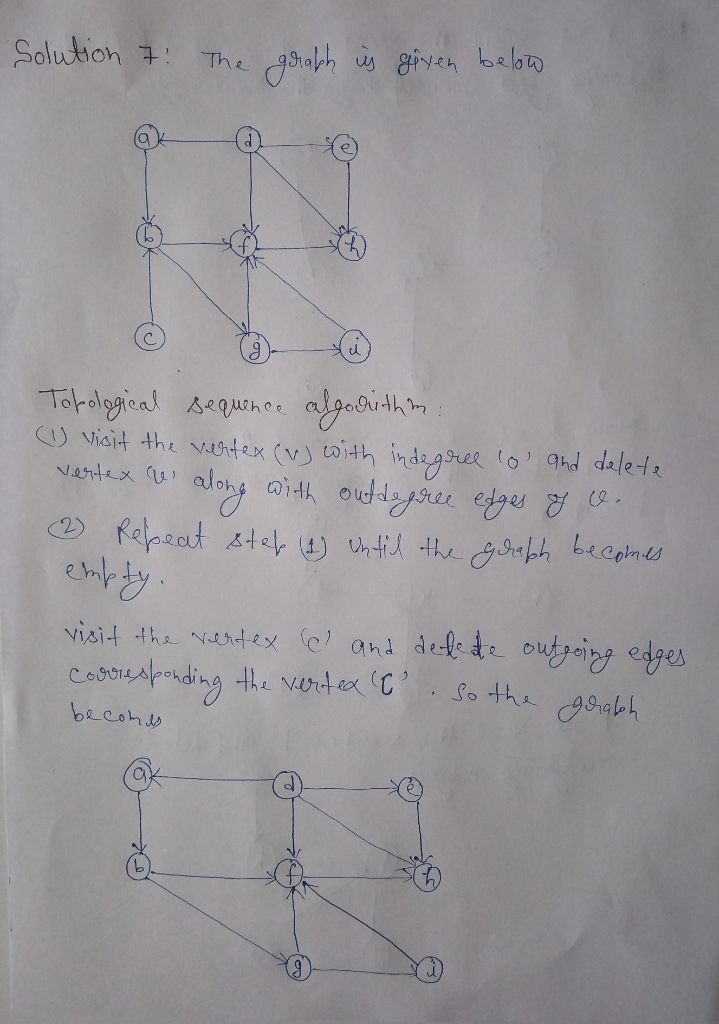 Solution 7: The graph is given below
a d e
b f h
c
g i
Topological sequence algorithm:
(1) Visit the vertex (v) with indegree '0' and delete
vertex 'v' along with outdegree edges of v.
(2) Repeat step (1) until the graph becomes
empty.
visit the vertex 'c' and delete outgoing edges
corresponding the vertex 'C'. So the graph
becomes
a d e
b f h
g i